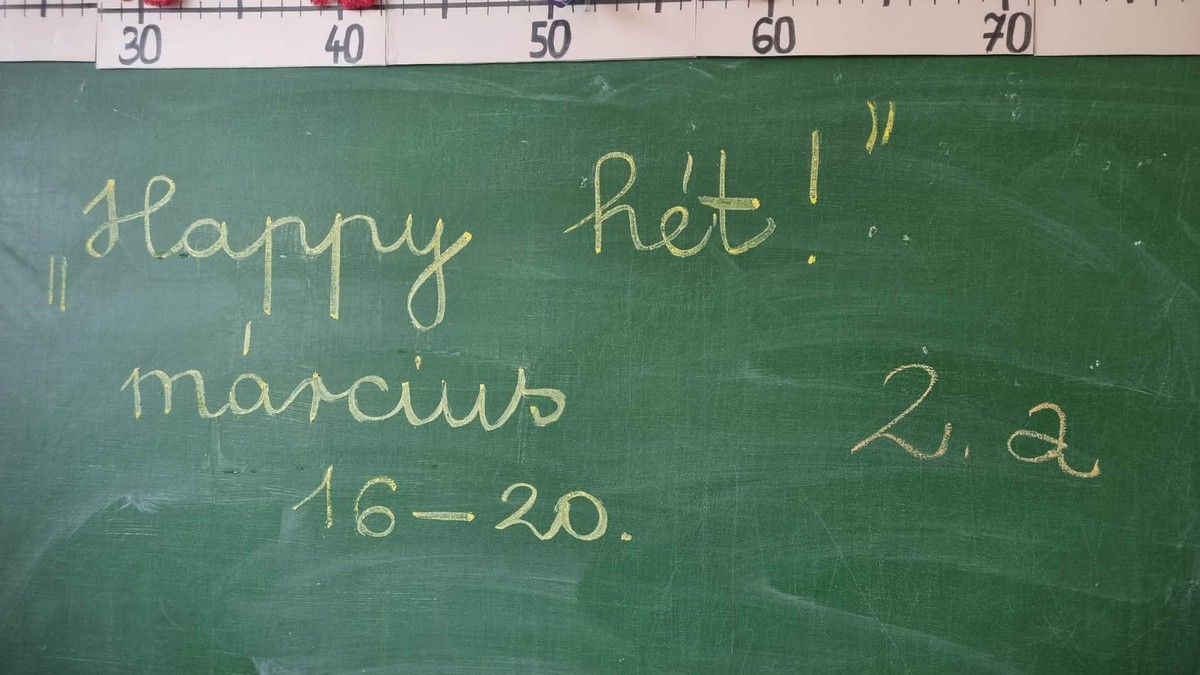 30 40 50 60 70
„Happy hét!”
március
16-20.
2. a